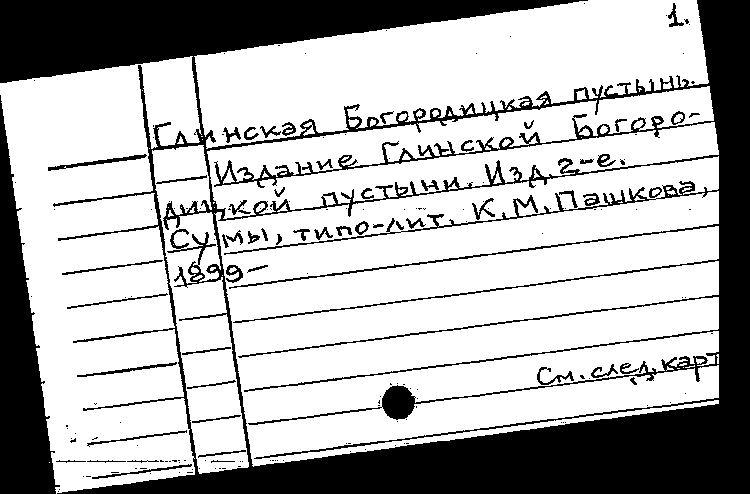 1.
Глинская Богородицкая пустынь.
Издание Глинской Богоро-
дицкой пустыни. Изд. 2-е.
Сумы, типо-лит. К.М.Пашкова,
1899-
См. след. карт